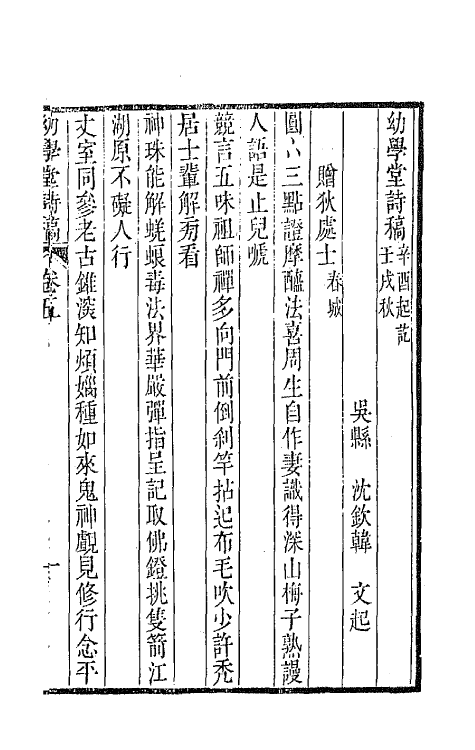 幼學堂詩稿 辛酉起訖
壬戌秋
吳縣 沈欽韓 文起
贈狄處士 春城
圓∴三點證摩醯法喜周生自作妻識得深山梅子熟謾
人語是止兒嗁
競言五味祖師禪多向門前倒刹竿拈起布毛吹少許禿
居士輩解旁看
神珠能解蜣螂毒法界華嚴彈指呈記取佛鐙挑隻箭江
湖原不礙人行
丈室同參老古錐深知煩惱種如來鬼神覷見修行念平
幼學堂詩稿 卷五 一